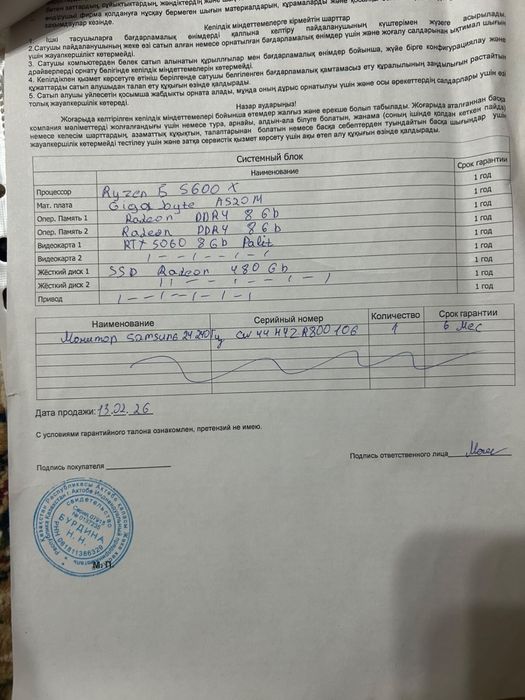 Кепілдік міндеттемелерге кірмейтін шарттар
1. Ішкі тасушыларға бағдарламалық өнімерді қалпына келтіру пайдаланушының күштерімен жүзеге асырылады.
2.Сатушы пайдаланушының жеке өзі сатып алған немесе орнатылған бағдарламалық өнімдер үшін және жоғалу салдарынан ықтимал шығын
үшін жауапкершілік көтермейді.
3. Сатушы компьютерден бөлек сатып алынатын құрылғылар мен бағдарламалық өнімдер бойынша, жүйе бірге конфигурациялау және
драйверлерді орнату бөлігінде кепілдік міндеттемелерін көтермейді.
4. Кепілдікпен қызмет көрсетуге өтініш берілгенде сатушы білгіленген бағдарламалық қамтамасыз ету құралының заңдылығын растайтын
құжаттарды сатып алушыдан талап ету құқығын өзінде қалдырады.
5. Сатып алушы үйлесетін қосымша жабдықты орната алады, мұнда оның дұрыс орнатылуы үшін және осы әрекеттердің салдарлары үшін өзі
толық жауапкершілік көтереді.
Назар аударыңыз!
Жоғарыда келтірілген кепілдік міндеттемелері бойынша өтемдер жалғыз және ерекше болып табылады. Жоғарыда аталғаннан басқа
компания мәліметтерді жоғалғандығы үшін немесе тура, арнайы, алдын-ала білуге болатын, жанама (соның ішінде қолдан кеткен пайда)
немесе келесім шарттардың, азаматтық құқықтың, талаптарынан болатын немесе басқа себептерден туындайтын басқа шығындар үшін
жауапкершілік көтермейді тестілеу үшін және затқа сервистік қызмет көрсету үшін ақы өтеп алу құқығын өзінде қалдырады.
Системный блок
Наименование Срок гарантии
Процессор Ryzen 5 5600 X 1 год
Мат. плата Gigabyte A520M 1 год
Опер. Память 1 Radeon DDR4 8 Gb 1 год
Опер. Память 2 Radeon DDR4 8 Gb 1 год
Видеокарта 1 RTX 5060 8Gb Palit 1 год
Видеокарта 2 1 год
Жёсткий диск 1 SSD Radeon 480 Gb 1 год
Жёсткий диск 2 1 год
Привод
Наименование Серийный номер Количество Срок гарантии
Монитор Samsung 24 240Гц CW44H42R800106 1 6 мес
Дата продажи: 13.02.26
С условиями гарантийного талона ознакомлен, претензий не имею.
Подпись ответственного лица
Подпись покупателя
свидетельство
БУРДИНА
Н. Н.
М. П.